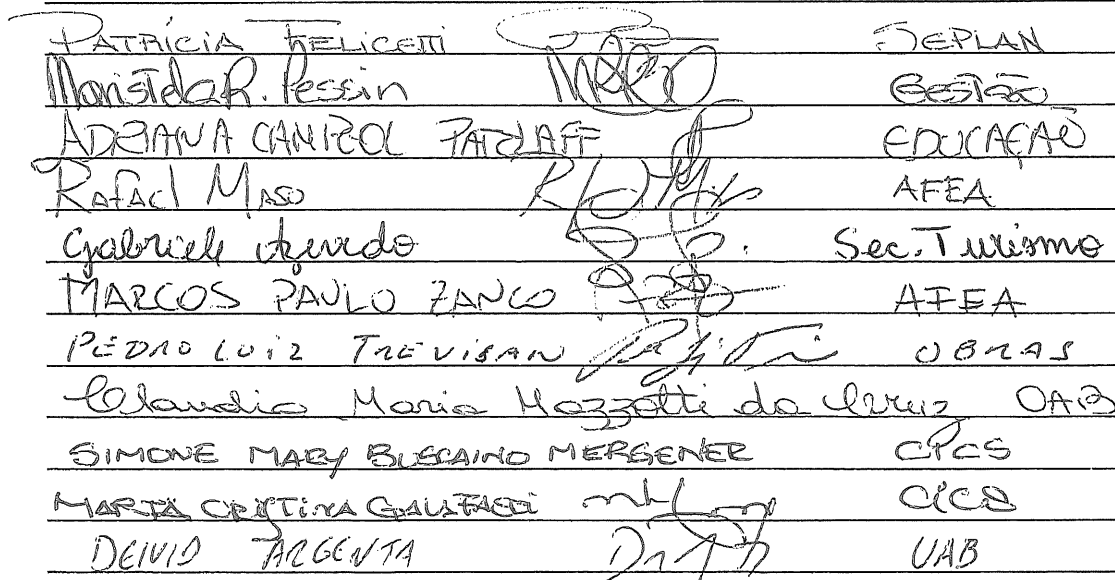 PATRÍCIA FELICETTI SEPLAN
Maristela R. Pessin GESTÃO
ADRIANA EDUCAÇÃO
Rafael Maso AFEA
Gabriele Azevedo Sec. Turismo
MARCOS PAULO ZANCO AFEA
PEDRO LUIZ TREVISAN OBRAS
Claudia Maria Mazzotti da Cruz OAB
SIMONE MARY BUSCAINO MERGENER CPCS
MARTA CRISTINA CICS
DEIVID ARGENTA UAB